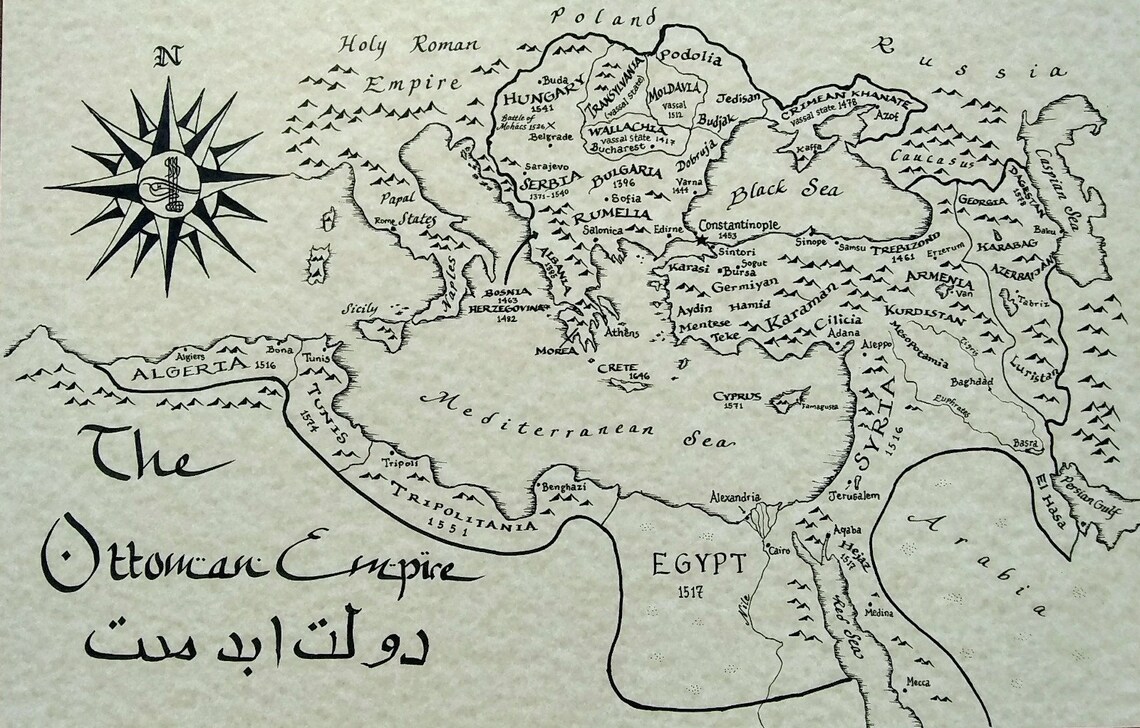 N
Holy Roman
Empire
Poland
Russia
Podolia
Buda
HUNGARY
1541
Battle of
Mohács 1526 X
Belgrade
TRANSYLVANIA
(vassal state)
MOLDAVIA
vassal
1512
Jedisan
Budjak
WALLACHIA
vassal state 1417
Bucharest
CRIMEAN KHANATE
vassal state 1478
Azof
Kaffa
Caucasus
Caspian Sea
DAGESTAN
GEORGIA
Baku
KARABAG
AZERBAIJAN
Tabriz
Dobruja
Varna
1444
Black Sea
Sarajevo
SERBIA
1371-1540
BULGARIA
1396
Sofia
RUMELIA
Salonica
Edirne
Constantinople
1453
Papal
States
Rome
Naples
Sicily
BOSNIA
1463
HERZEGOVINA
1482
ALBANIA
MOREA
Athens
Sintori
Sogut
Bursa
Karasi
Germiyan
Aydin
Hamid
Mentese
Teke
Karaman
Cilicia
Adana
Sinope
Samsu
TREBIZOND
1461
Erzerum
ARMENIA
Van
KURDISTAN
Mesopotamia
Tigris
Luristan
Baghdad
Euphrates
Basra
Aleppo
SYRIA
1516
Jerusalem
CRETE
1646
CYPRUS
1571
Famagusta
Mediterranean Sea
Algiers
Bona
Tunis
ALGERIA 1516
TUNIS
1574
Tripoli
TRIPOLITANIA
1551
Benghazi
Alexandria
Cairo
EGYPT
1517
Nile
Aqaba
Hejaz
1517
Red Sea
Medina
Mecca
Arabia
El Hasa
Persian Gulf
The
Ottoman Empire
دولت ابد مدت